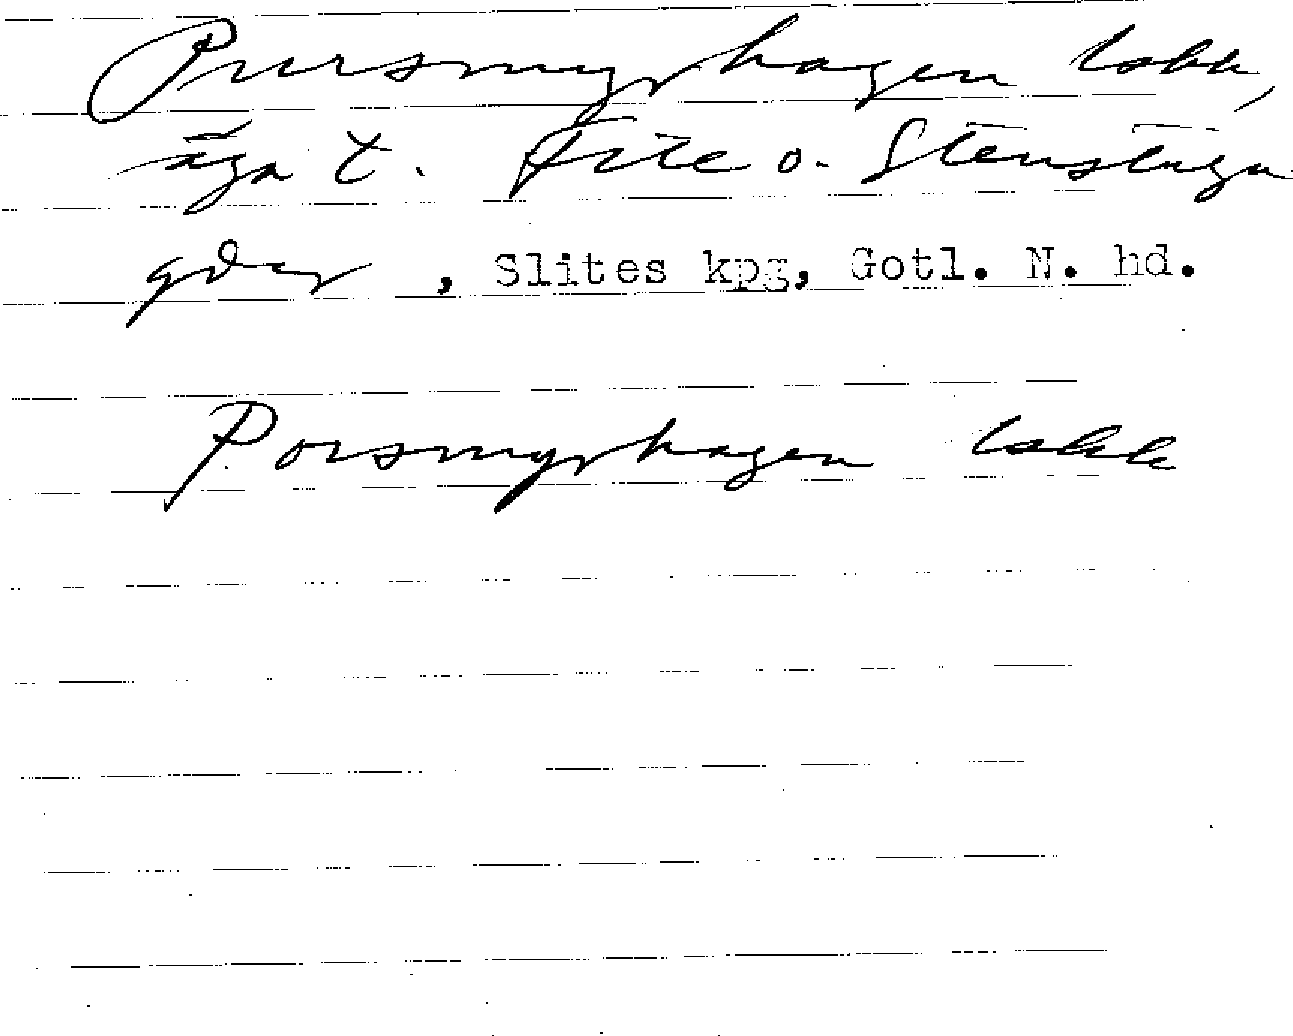 Pursmyrhagen
äga t. File o. Stenstuga
gdar, Slites kpg, Gotl. N. hd.
Porsmyrhagen